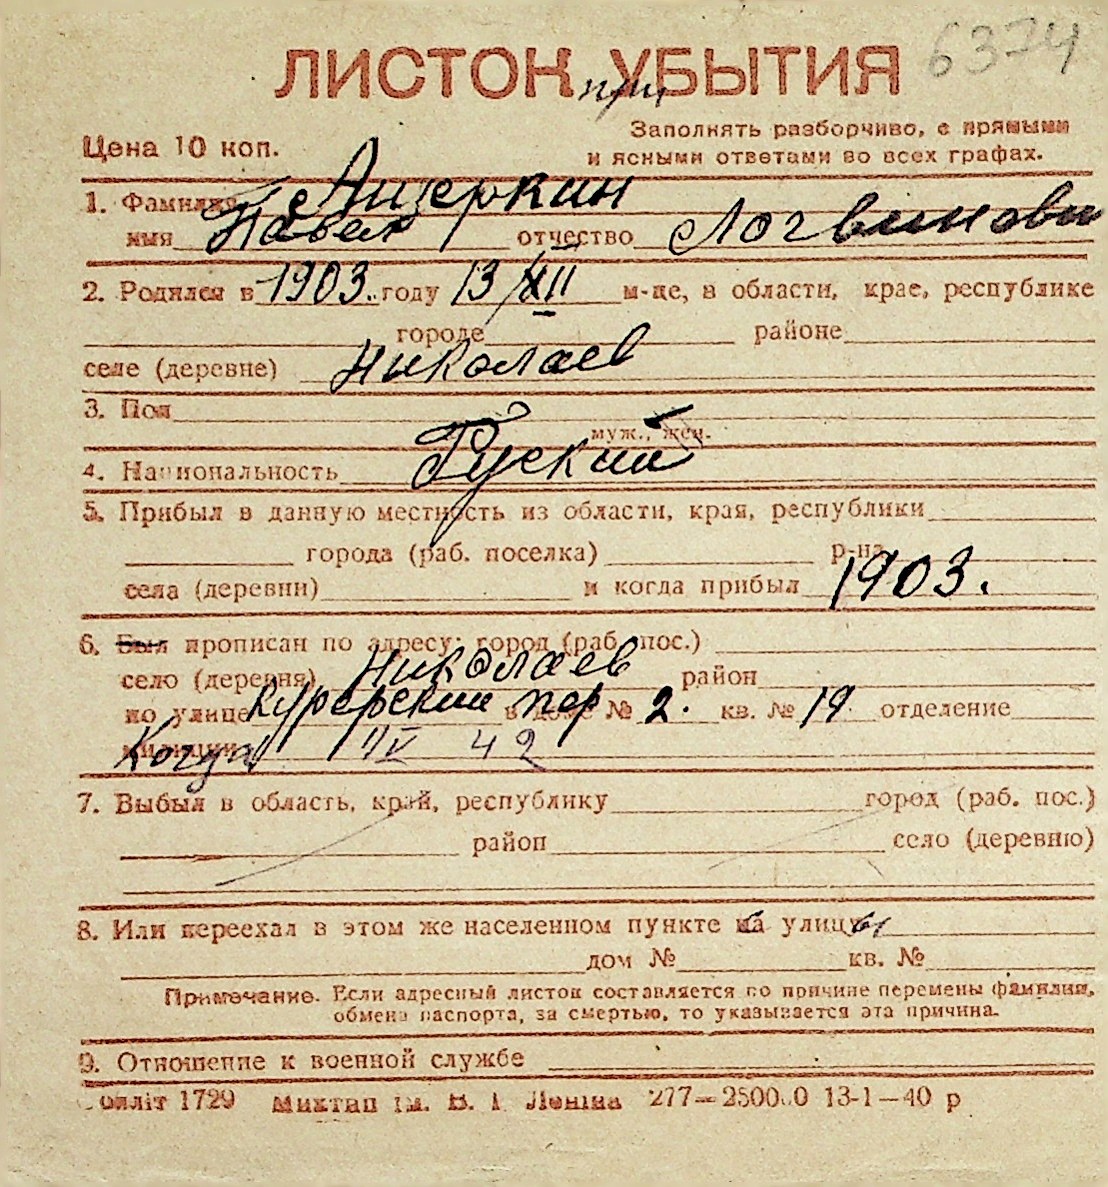 6374
ЛИСТОК УБЫТИЯ
при
Цена 10 коп.
Заполнять разборчиво, с прямыми
и ясными ответами во всех графах.
1. Фамилия Анзеркин
имя Павел отчество Логвинович
2. Родился в 1903. году 13/XII м-це, в области, крае, республике
городе районе
селе (деревне) Николаев
3. Пол
муж., жен.
4. Национальность Руский
5. Прибыл в данную местность из области, края, республики
города (раб. поселка) р-на
села (деревни) и когда прибыл 1903.
6. Был прописан по адресу: город (раб. пос.)
село (деревня) Николаев район
по улице Курерский пер в доме № 2. кв. № 19 отделение
милиции Когда IV 42
7. Выбыл в область, край, республику город (раб. пос.)
район село (деревню)
8. Или переехал в этом же населенном пункте на улицу
дом № кв. №
Примечание. Если адресный листок составляется по причине перемены фамилии,
обмена паспорта, за смертью, то указывается эта причина.
9. Отношение к военной службе
1729 ім. В. І. Леніна 13-1—40 р